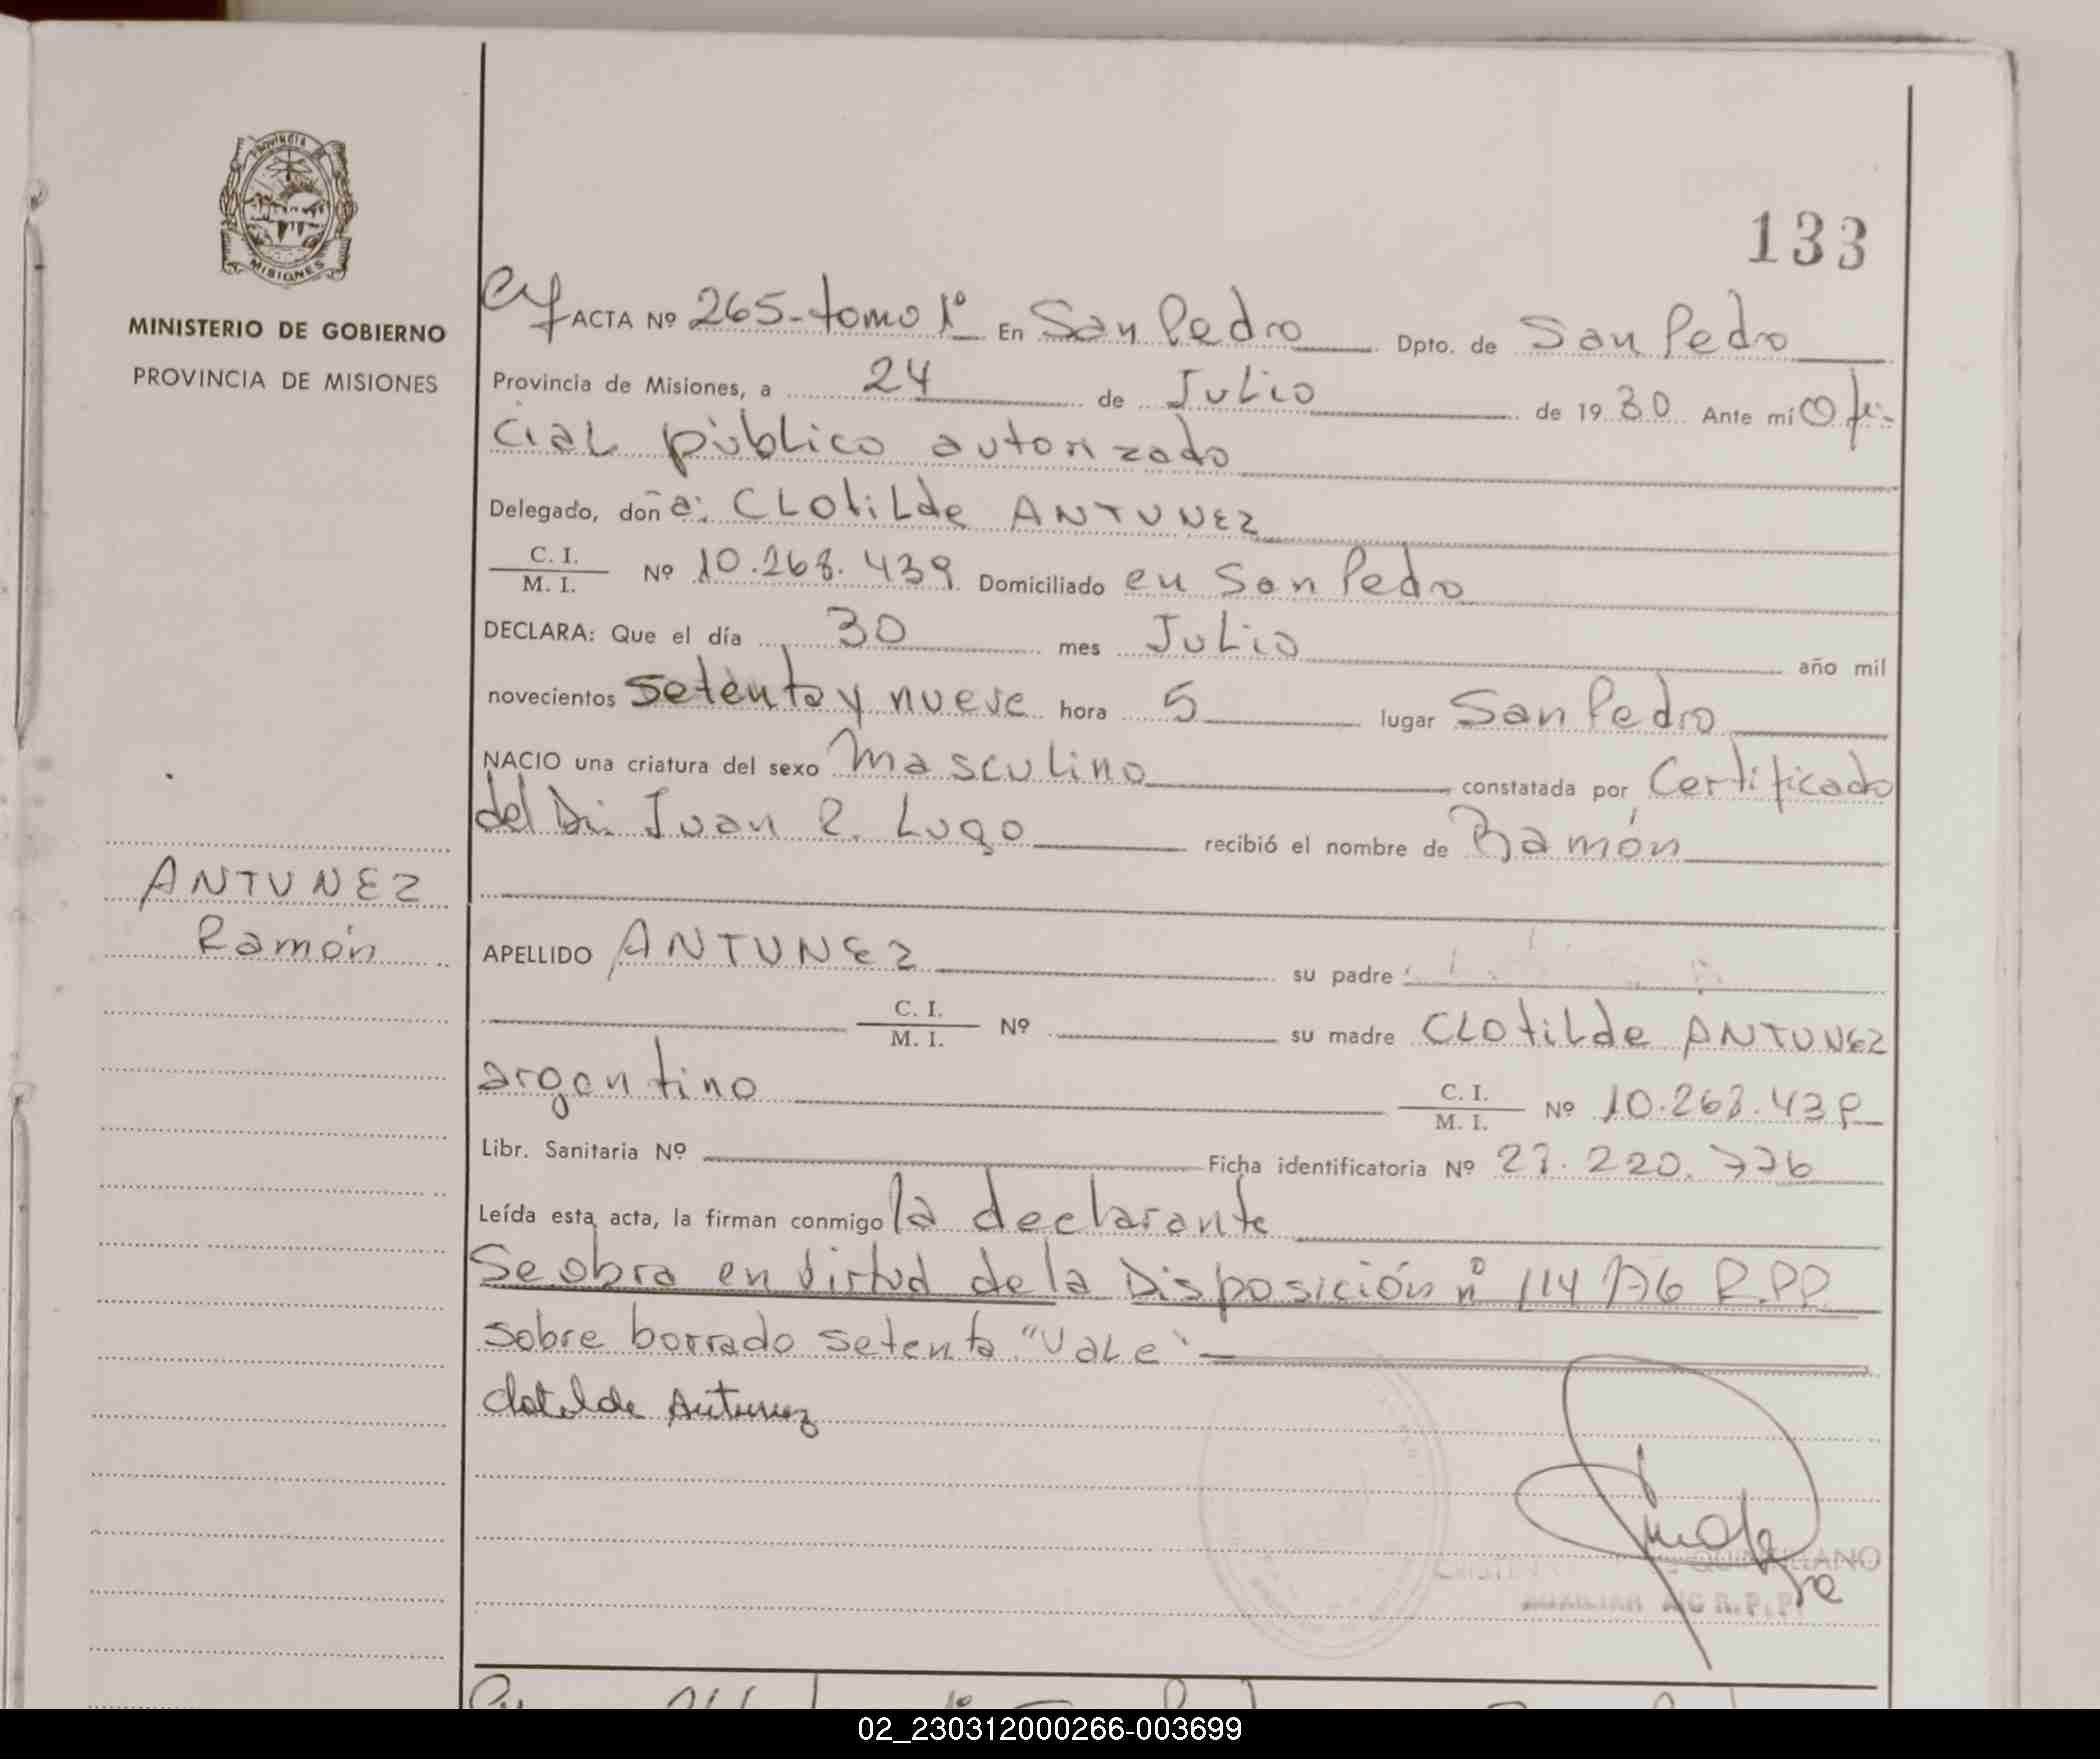 133
PROVINCIA
MISIONES
MINISTERIO DE GOBIERNO
PROVINCIA DE MISIONES
ACTA Nº 265-tomo 1º En San Pedro Dpto. de San Pedro
Provincia de Misiones, a 24 de Julio de 1930 Ante mí Ofi-
cial público autorizado
Delegado, doña: CLotiLde ANTUNEZ
C. I.
M. I. Nº 10.268.439 Domiciliado en San Pedro
DECLARA: Que el día 30 mes Julio año mil
novecientos setenta y nueve hora 5 lugar San Pedro
NACIO una criatura del sexo masculino constatada por Certificado
del Dr. Juan R. Lugo recibió el nombre de Ramón
ANTUNEZ
Ramón
APELLIDO ANTUNEZ su padre
C. I.
M. I. Nº su madre CLOtiLde ANTUNEZ
argentino C. I.
M. I. Nº 10.268.439
Libr. Sanitaria Nº Ficha identificatoria Nº 27.220.776
Leída esta acta, la firman conmigo la declarante
Se obra en virtud de la Disposición nº 114/76 R.P.P.
sobre borrado setenta "Vale"
Clotilde Antunez
AUXILIAR A/C R.P.P.
02_230312000266-003699